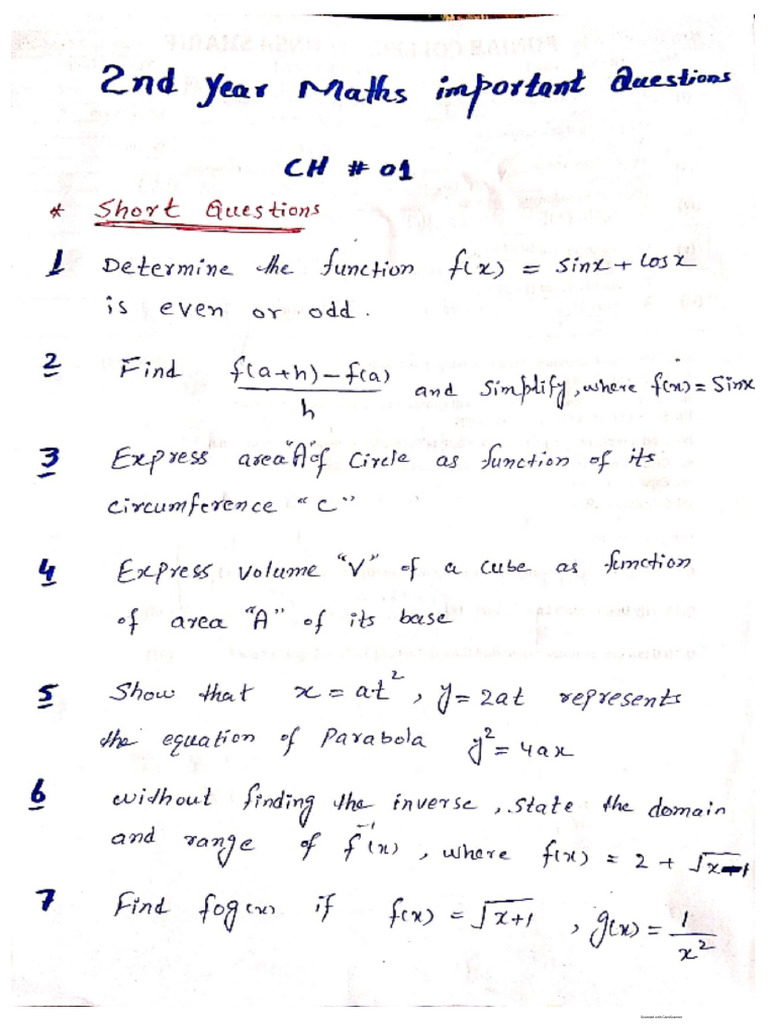 2nd year Maths important Questions
CH # 01
* Short Questions
1 Determine the function f(x) = sinx + cosx
is even or odd.
2 Find f(a+h) - f(a) / h and simplify, where f(x) = Sinx
3 Express area "A" of Circle as function of its
circumference "C"
4 Express volume "V" of a cube as function
of area "A" of its base
5 Show that x = at², y = 2at represents
the equation of Parabola y² = 4ax
6 without finding the inverse, state the domain
and range of f⁻¹(x), where f(x) = 2 + √x-1
7 Find fog(x) if f(x) = √x+1, g(x) = 1/x²
Scanned with CamScanner